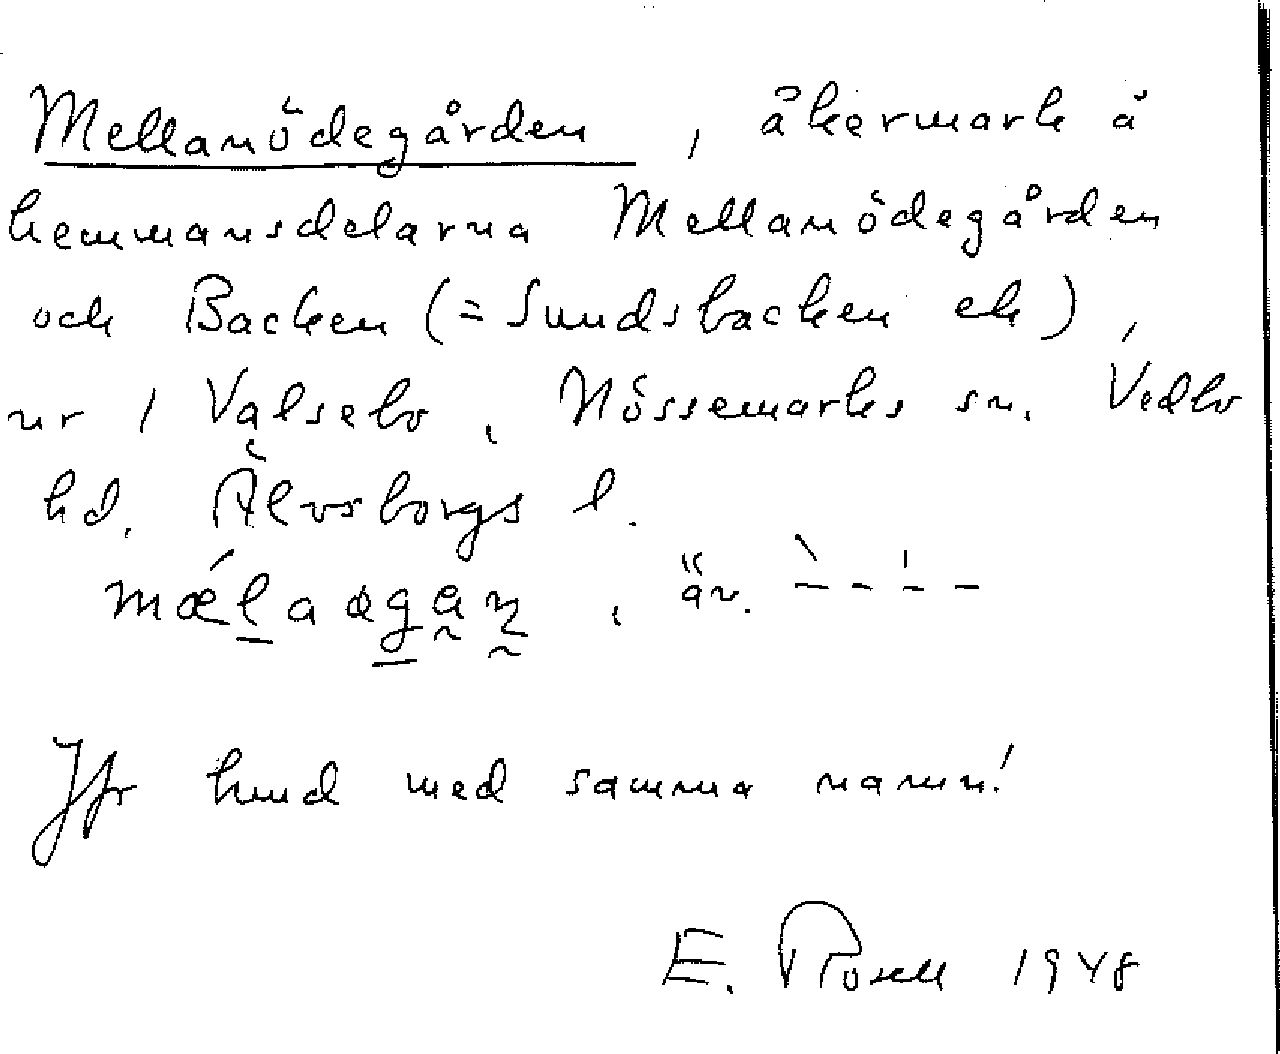 Mellanödegården, åkermark å
hemmansdelarna Mellanödegården
och Backen (= Sundsbacken ek),
nr 1 Valsebo, Nössemarks sn. Vedbo
hd. Älvsborgs l.
, äv.
Jfr hmd med samma namn!
E. Rosell 1948